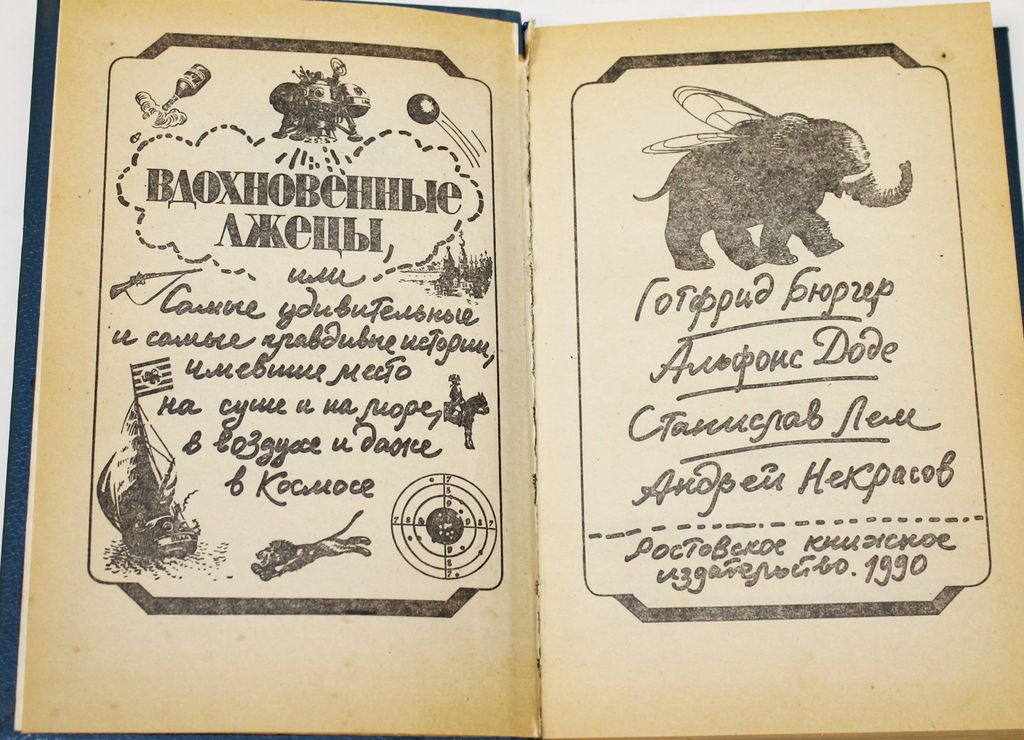 ВДОХНОВЕННЫЕ
ЛЖЕЦЫ,
или
Самые удивительные
и самые правдивые истории,
имевшие место
на суше и на море,
в воздухе и даже
в Космосе
Готфрид Бюргер
Альфонс Доде
Станислав Лем
Андрей Некрасов
Ростовское книжное
издательство. 1990